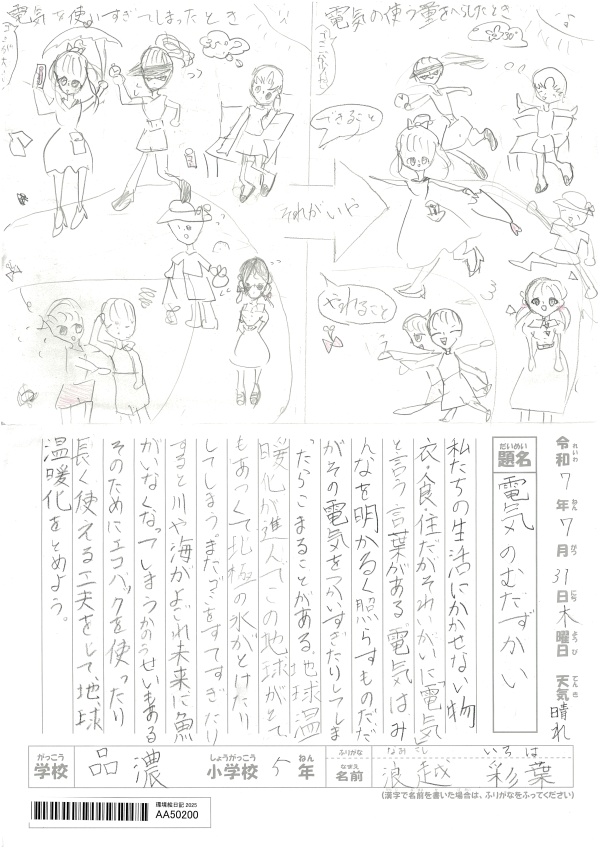 電気を使いすぎてしまったとき
電気の使う量をへらしたとき
できること
それがいや
やれること
令和7年7月31日木曜日 天気晴れ
れいわ ねん がつ にち ようび てんき
だいめい
題名 電気のむだずかい
私たちの生活にかかせない物
衣・食・住だがそれいがいに「電気」
と言う言葉がある。電気はみ
んなを明かるく照らすものだだ
がその電気をつかいすぎたりしてしま
ったらこまることがある。地球温
暖化が進んでこの地球がとて
もあつくて北極の氷がとけたり
してしまう。またゴミをすてすぎたり
すると川や海がよごれ未来に魚
がいなくなってしまうかのうせいもある
そのためにエコバックを使ったり
長く使える工夫をして、地球
温暖化をとめよう。
がっこう しょうがっこう ねん
学校 品濃 小学校 5年
ふりがな なみこし いろは
なまえ
名前 浪越 彩葉
(漢字で名前を書いた場合は、ふりがなをふってください)
環境絵日記2025
AA50200